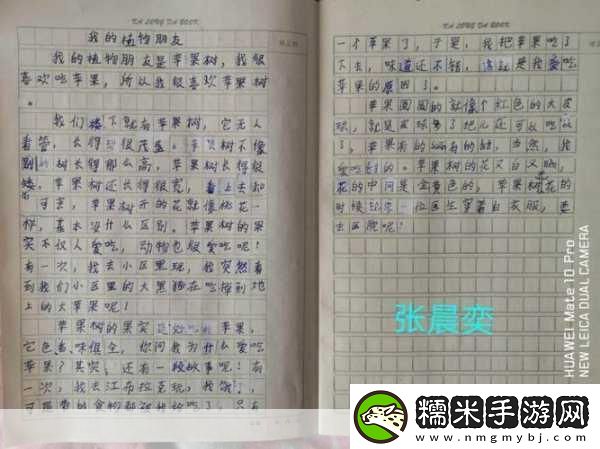 KA LONG DA BOOK
我的植物朋友
我的植物朋友是苹果树，我很
喜欢吃苹果，所以我很喜欢苹果树
。
我们楼下就有苹果树，它无人
看管，长得却很茂盛。苹果树不像
别的树长得那么高，苹果树长得很
矮。苹果树还长得很宽，看上去如
开的花就像桃花一
样，基本没什么区别。苹果树的果
实不仅人爱吃，动物也很爱吃呢！
有一次，我去小区里玩，我突然看
到我们小区里的大黑狗在吃掉到地
上的大苹果呢！
苹果树的果实是好吃的苹果，
它色香味俱全，你问我为什么爱吃
苹果？其实，还有一段故事呢！有
一次，我去江布拉克玩，我饿了，
可是带的食物都被我吃了，只有
KA LONG DA BOOK
一个苹果了，于是，我把苹果吃了
下去，味道还不错，这就是我爱吃
苹果的原因了。
苹果圆圆的就像个红色的大皮
球，就是皮球多了把儿还可以吃
了，苹果有的有的甜，当然，我
爱吃甜的。苹果树的花又白又
花的中间是金黄色的，苹果树花的
时候如一位医生穿着白衣服，要
去医院呢！
张晨奕
HUAWEI Mate 10 Pro
NEW LEICA DUAL CAMERA
糯米手游网
www.nmgmybj.com